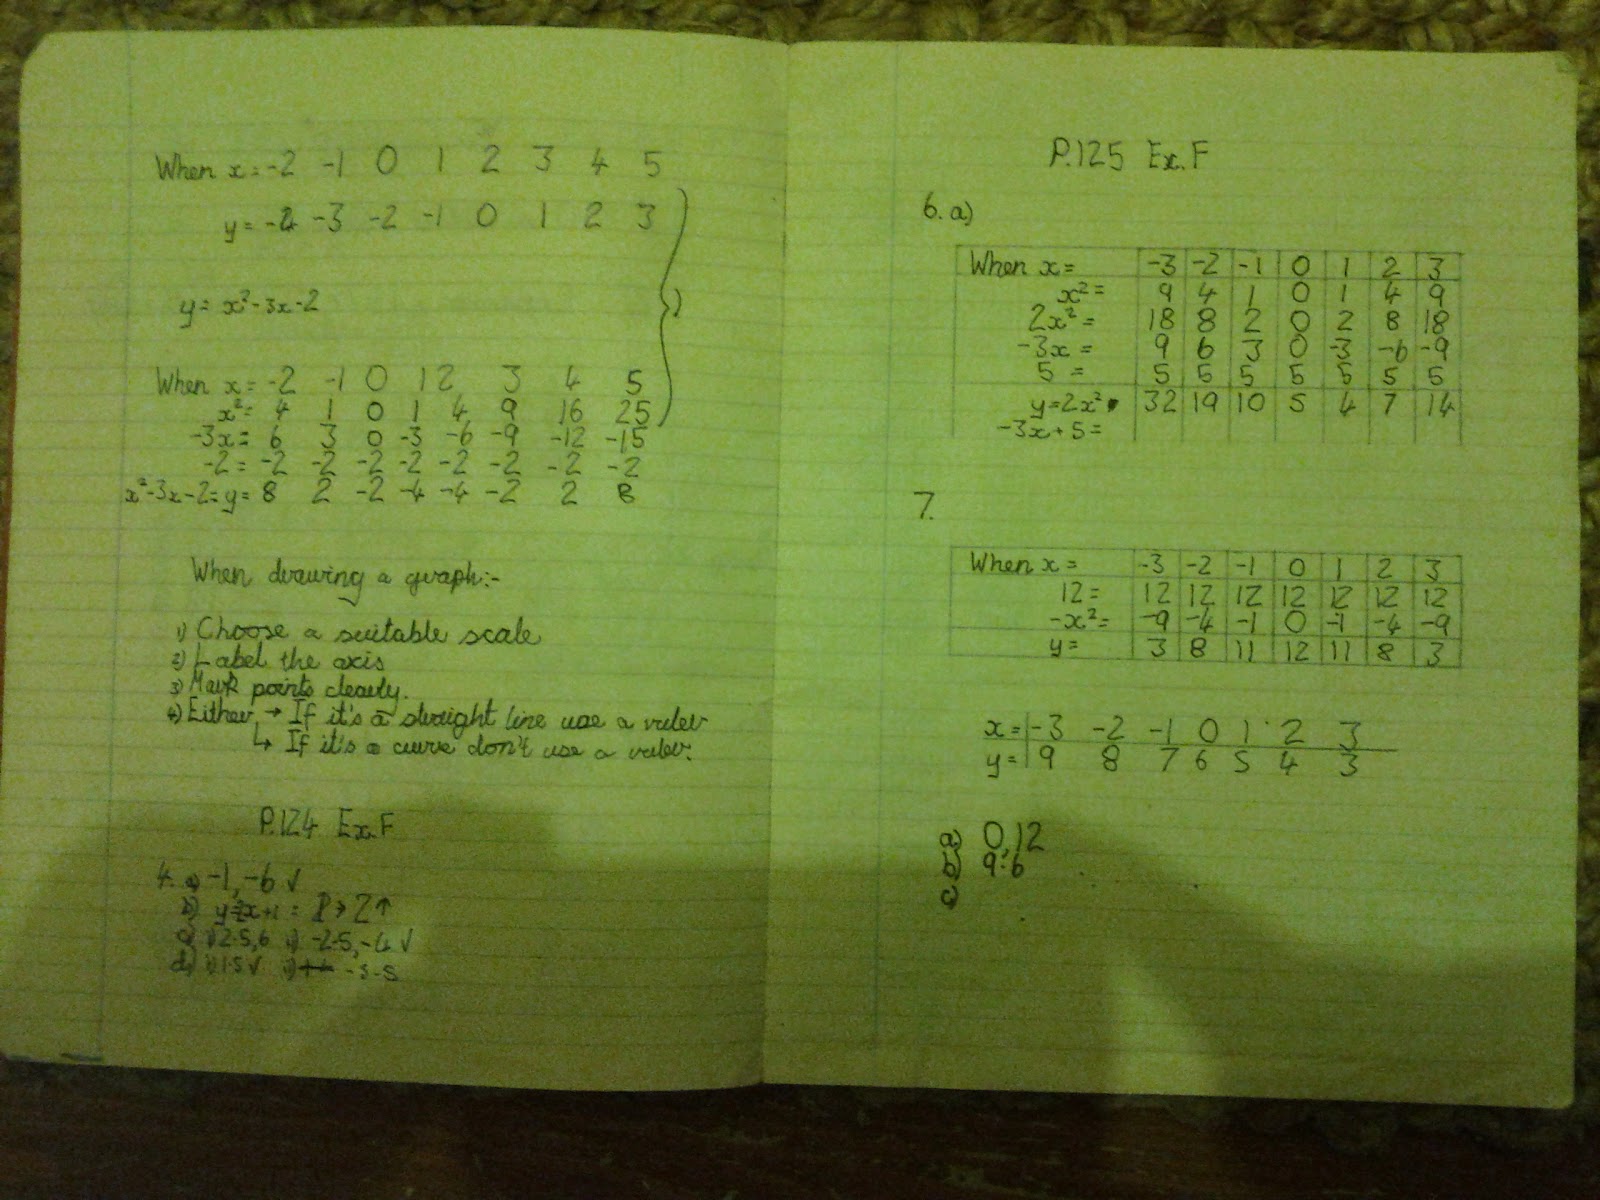 When x= -2 -1 0 1 2 3 4 5
y= -3 -2 -1 0 1 2 3
y= x²-3x-2
When x= -2 -1 0 1 2 3 4 5
x²= 4 1 0 1 4 9 16 25
-3x= 6 3 0 -3 -6 -9 -12 -15
-2= -2 -2 -2 -2 -2 -2 -2 -2
x²-3x-2=y= 8 2 -2 -4 -4 -2 2 8
When drawing a graph:-
1) Choose a suitable scale
2) Label the axis
3) Mark points clearly.
4) Either → If it's a straight line use a ruler
↳ If it's a curve don't use a ruler.
P.124 Ex.F
4. a) -1,-6 √
b)
c) i) 2.5,6 ii) -2.5,-4 √
d) i) 1.5 √ ii)
P.125 Ex.F
6. a)
When x= -3 -2 -1 0 1 2 3
x²= 9 4 1 0 1 4 9
2x²= 18 8 2 0 2 8 18
-3x= 9 6 3 0 -3 -6 -9
5= 5 5 5 5 5 5 5
y=2x² 32 19 10 5 4 7 14
-3x+5=
7.
When x= -3 -2 -1 0 1 2 3
12= 12 12 12 12 12 12 12
-x²= -9 -4 -1 0 -1 -4 -9
y= 3 8 11 12 11 8 3
x= -3 -2 -1 0 1 2 3
y= 9 8 7 6 5 4 3
a) 0,12
b) 9.6
c)